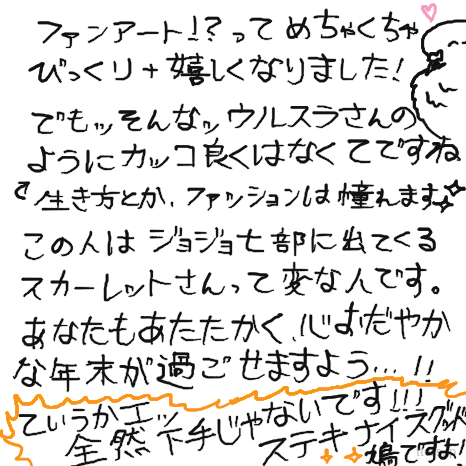 ファンアート!?って めちゃくちゃ
びっくり+嬉しくなりました!
でもッそんなッウルスラさんの
ようにカッコ良くはなくてですね
生き方とか、ファッションは憧れます
この人は ジョジョ七部に出てくる
スカーレットさんって変な人です。
あなたもあたたかく、心おだやか
な年末が過ごせますよう…!!
ていうかエッ
全然下手じゃないです!!!
ステキナイスグッド
鳩ですよ!